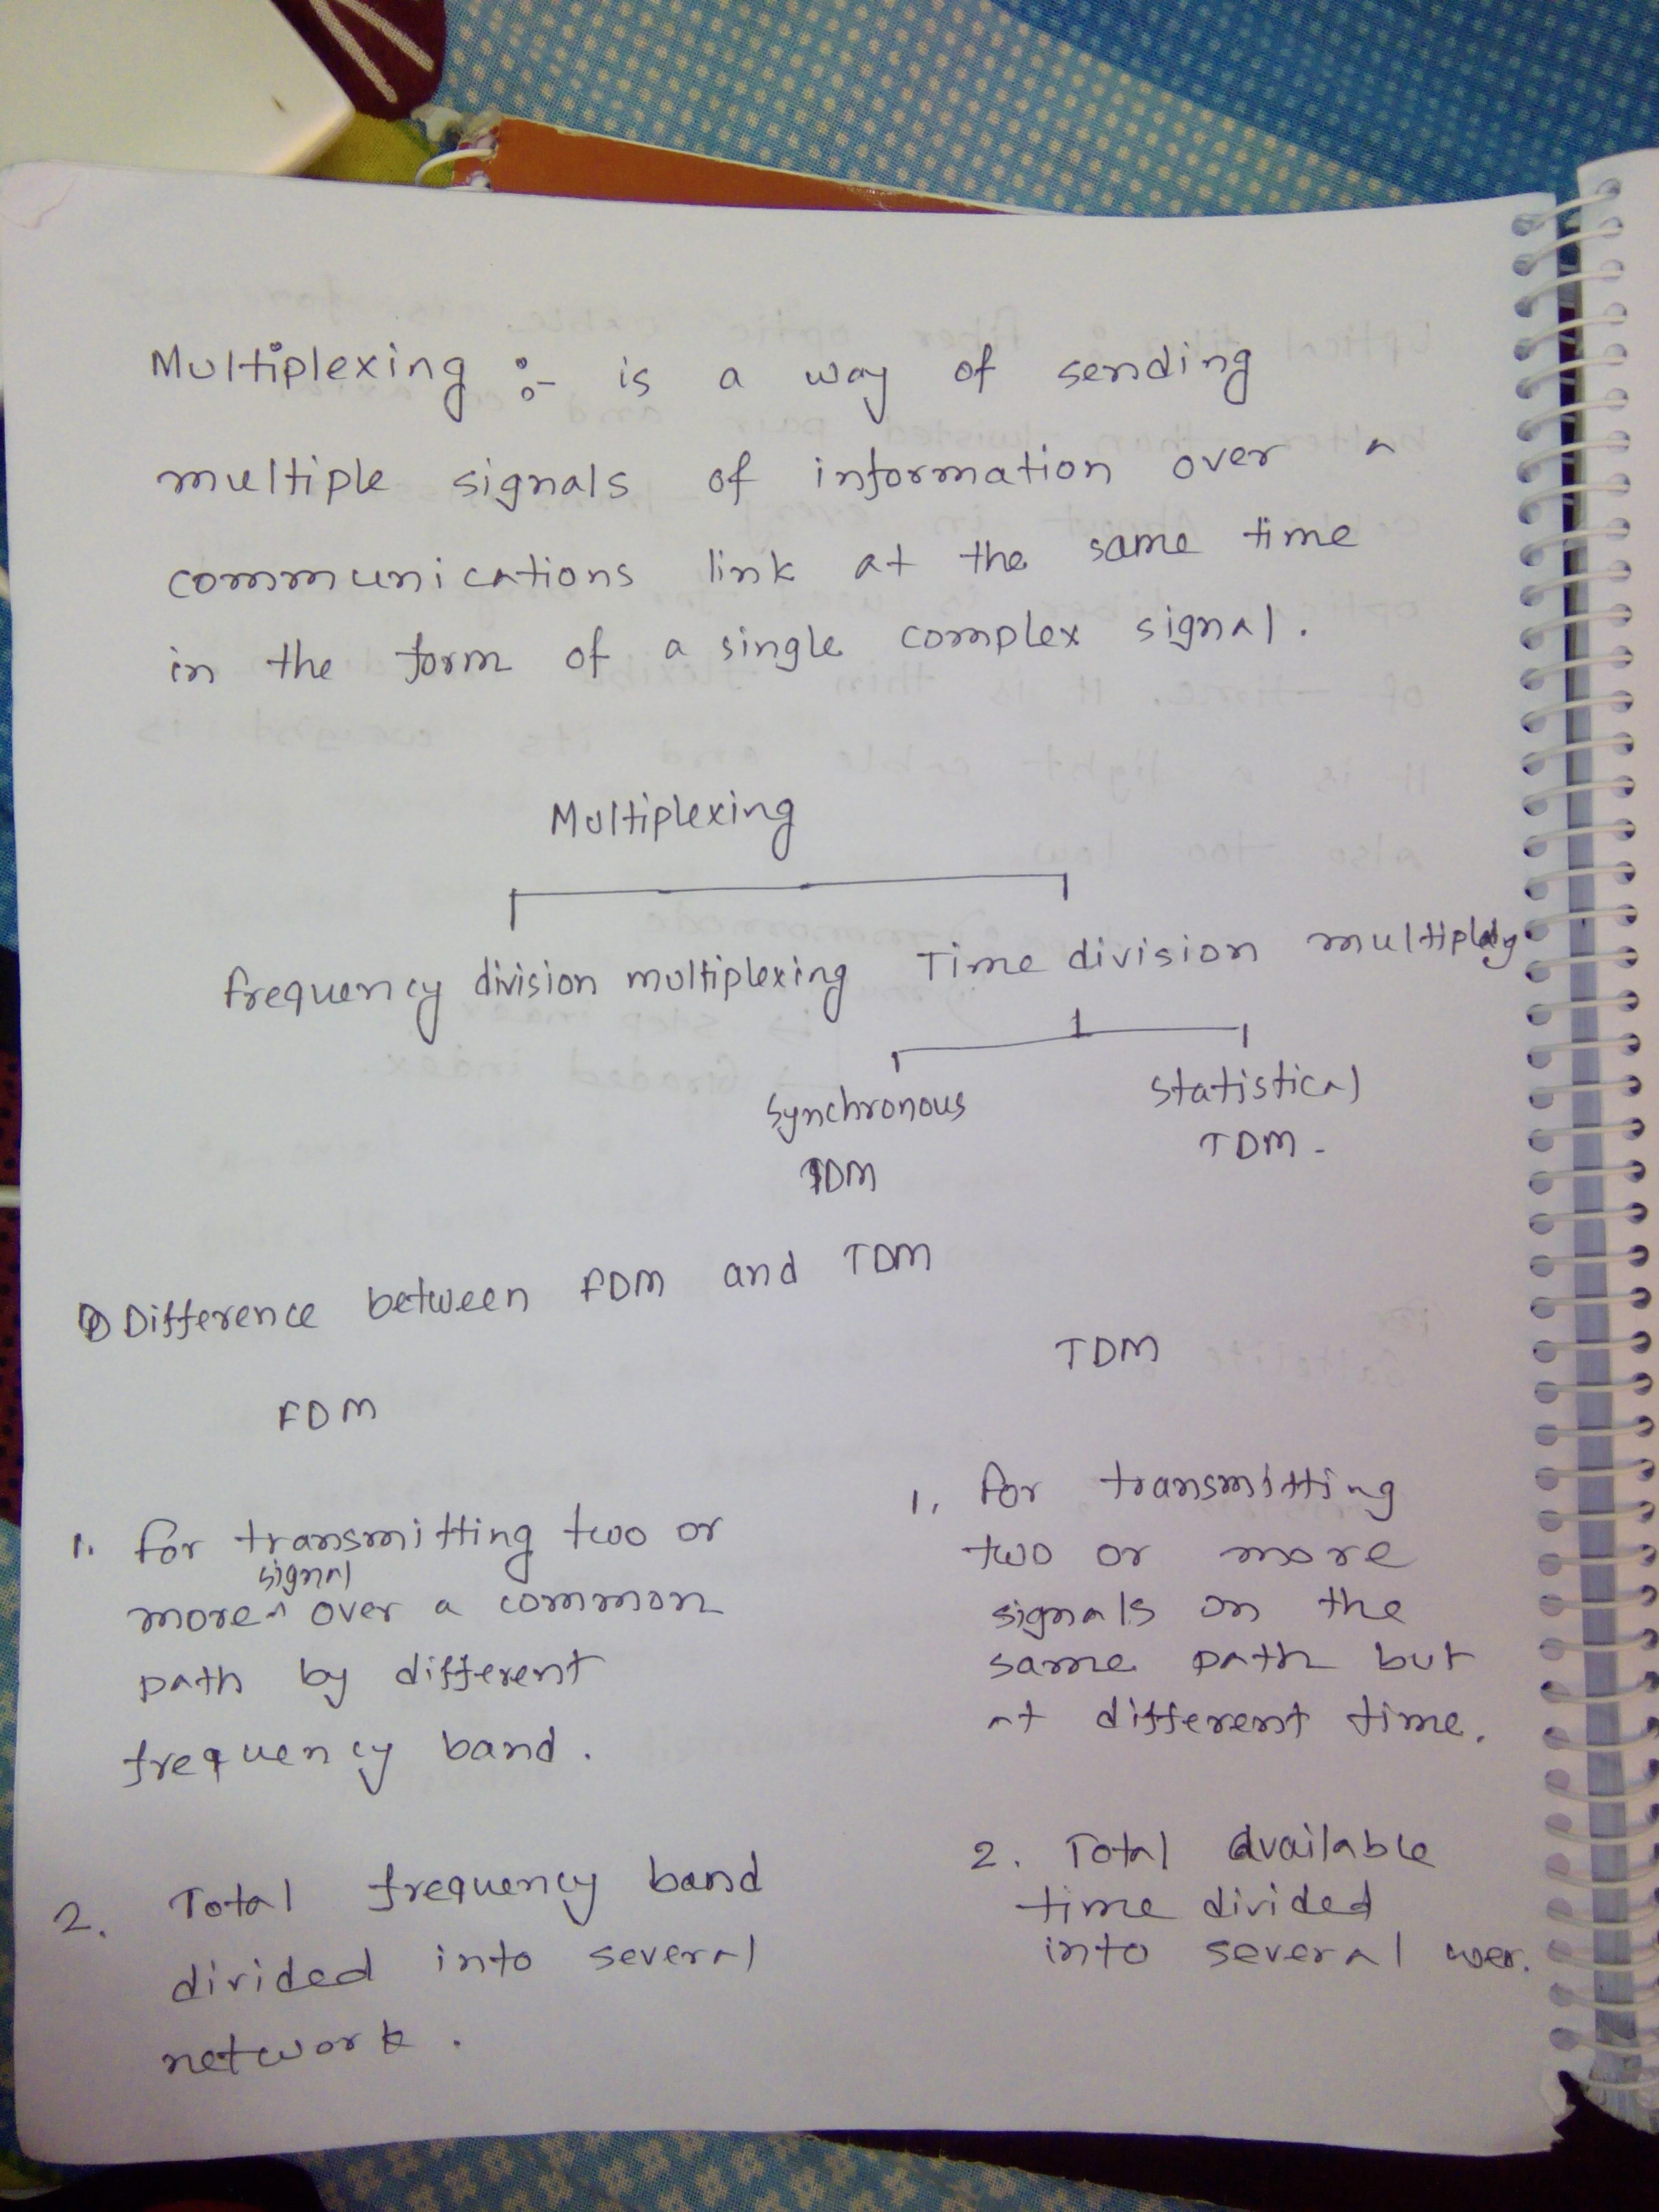 Multiplexing :- is a way of sending
multiple signals of information over a
communications link at the same time
in the form of a single complex signal.
Multiplexing
frequency division multiplexing Time division
Synchronous
TDM
Statistical
TDM -
Difference between FDM and TDM
FDM
1. for transmitting two or
signal
more ^ over a common
path by different
frequency band.
2. Total frequency band
divided into several
network.
TDM
1. for transmitting
two or more
signals on the
same path but
at different time.
2. Total available
time divided
into several user.